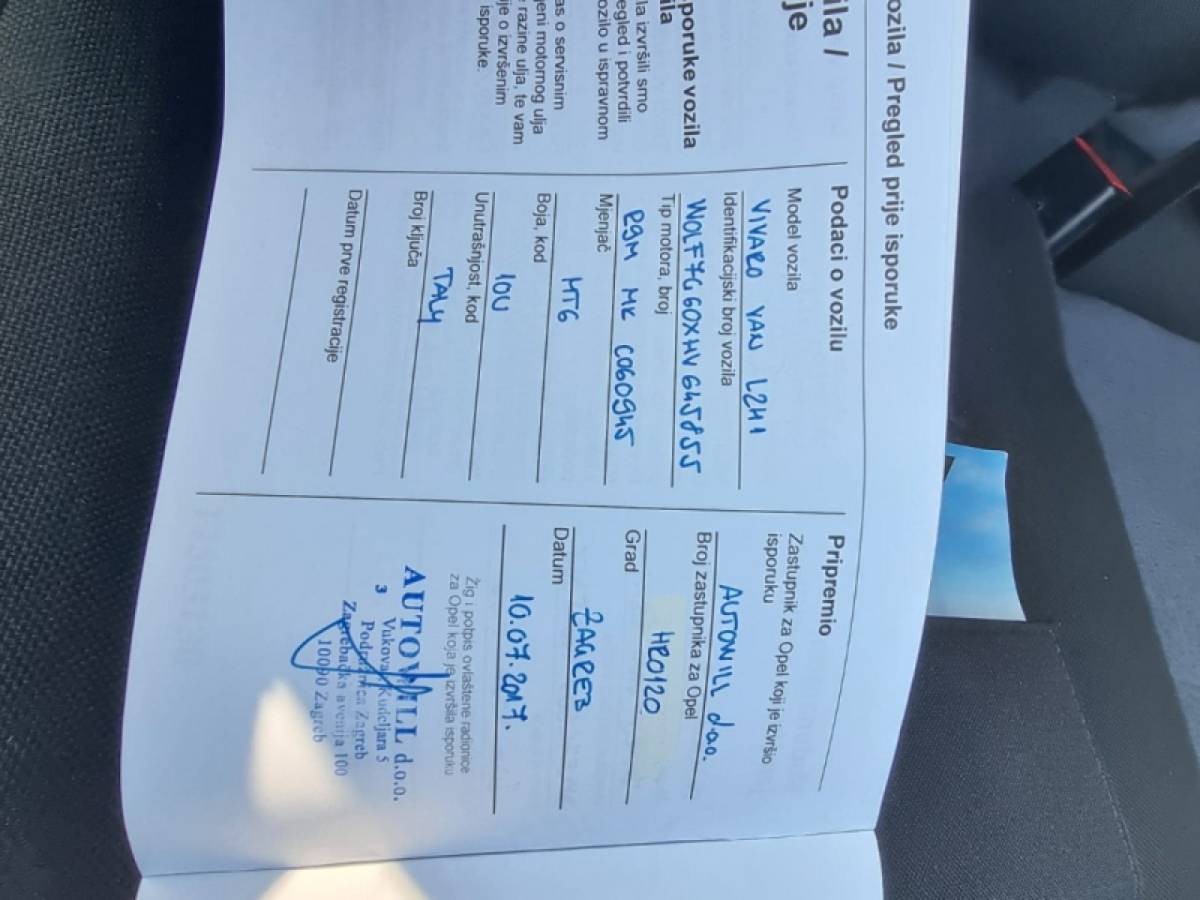 ozila / Pregled prije isporuke
ila /
je
poruke vozila
ila
la izvršili smo
egled i potvrdili
ozilo u ispravnom
as o servisnim
jeni motornog ulja
e razine ulja, te vam
ije o izvršenim
isporuke.
Podaci o vozilu
Model vozila
VIVARO VAN L2H1
Identifikacijski broj vozila
WOLF7G60XHV645855
Tip motora, broj
R9M MK C060945
Mjenjač
MT6
Boja, kod
10U
Unutrašnjost, kod
TALY
Broj ključa
Datum prve registracije
Pripremio
Zastupnik za Opel koji je izvršio
isporuku
AUTOWILL d.o.o.
Broj zastupnika za Opel
HR0120
Grad
ZAGREB
Datum
10.07.2017.
Žig i potpis ovlaštene radionice
za Opel koja je izvršila isporuku
AUTOWILL d.o.o.
3 Vukovar, Kudeljara 5
Podružnica Zagreb
Zagrebačka avenija 100
10090 Zagreb